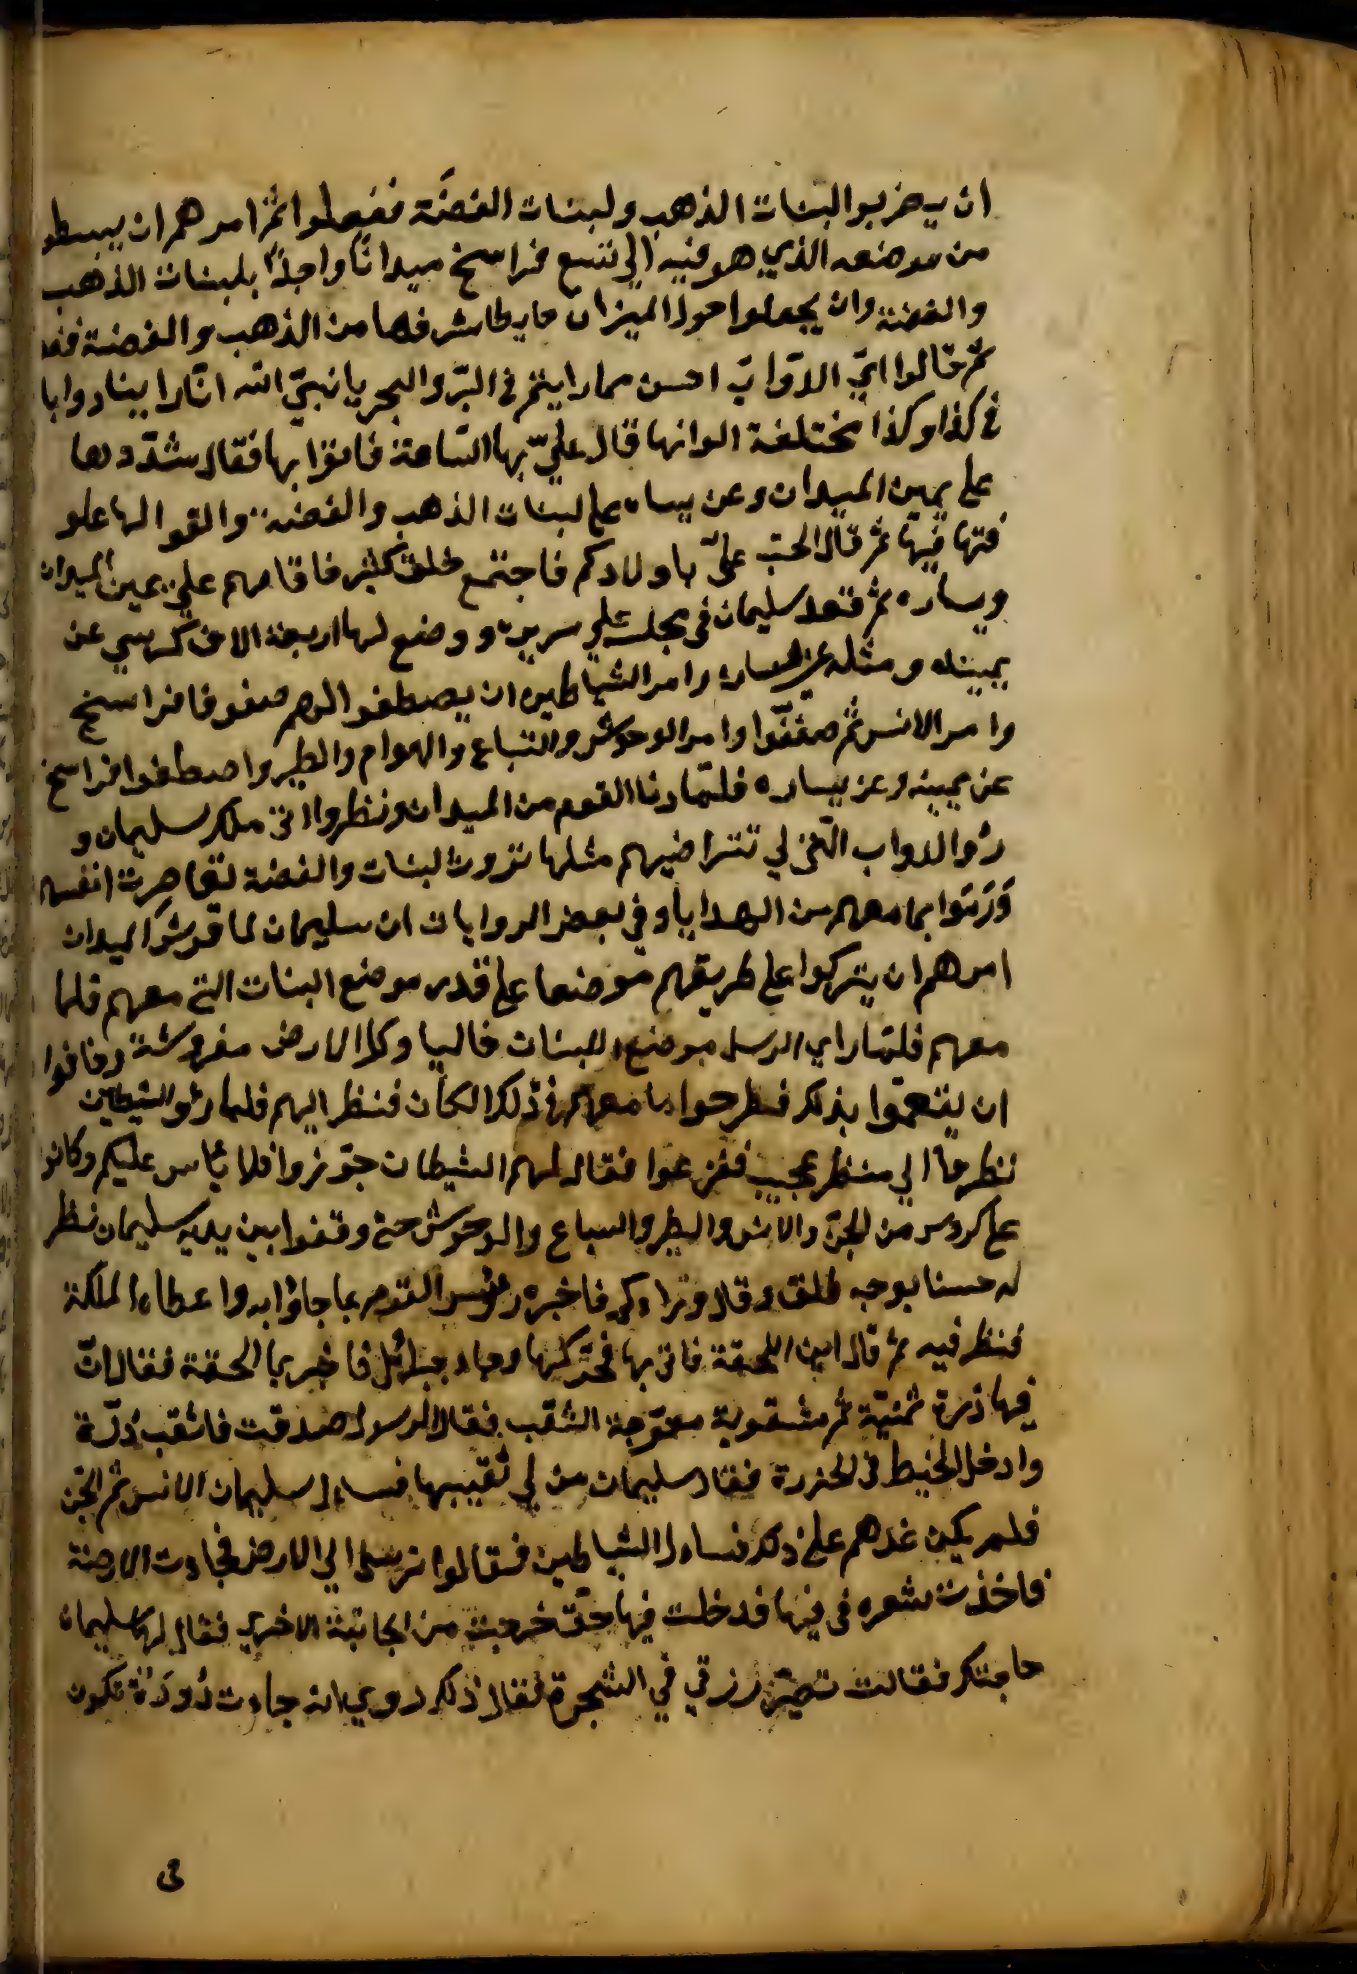 ان يضربوا لبنات الذهب ولبنات الفضّة ففعلوا ثمّ امرهم ان يبسطو
من موضعه الذي هو فيه الي تسع فراسخ ميدانًا واحدًا بلبنات الذهب
والفضة وان يجعلوا حول الميزان حايطا شرفها من الذهب والفضة ففعـ
ثمّ قالوا ايّ الدوابّ احسن مما رايتم في البرّ والبحر يا نبيّ الله انّا راينا دوابا
في كذا وكذا مختلفة الوانها قال عليّ بها السّاعة فاتوا بها فقال شدّوها
علي يمين الميدان وعن يساره علي لبنات الذهب والفضة والقوا لها علو
فتها فيها ثمّ قال الجنّ عليّ باولادكم فاجتمع خلق كثير فاقامهم علي يمين الميدان
ويساره ثمّ قعد سليمان في مجلسه علي سريره ووضع لها اربعة الاف كرسي عن
يمينه ومثله عن يساره وامر الشياطين ان يصطفوا لهم صفوفا فراسخ
وامر الانس ثمّ صففّوا وامر الوحوش والسّباع والهوام والطير واصطفوا فراسخ
عن يمينه وعن يساره فلمّا دنا القوم من الميدان ونظروا الي ملك سليمان و
رؤا الدواب الّتي لم تتراضيهم مثلها تروث لبنات والفضة تقاصرت انفسهم
وَرَمَوا بما معهم من الهدايا وفي بعض الروايات ان سليمان لما فرش الميدان
امرهم ان يتركوا علي طريقهم موضعا علي قدر موضع البنات التي معهم فلما
معهم فلمّا راي الرسل موضع اللبنات خاليا وكل الارض مفروشة وخافوا
ان يتهمّوا بذلك فطرحوا ما معهم في ذلك الكان فنظر اليهم فلما رؤ الشيطين
نظروا الي منظر عجيب ففزعوا فقال لهم الشيطان جوّزوا فلا باس عليكم وكانو
علي كردوس من الجنّ والانس والطير والسباع والوحوش حتي وقفوا بين يديه سليمان نظر
له حسنا بوجه طلق وقال وراءكم فاخبره رؤس القوم بما جاؤا به واعطاه الملكة
فنظر فيه ثمّ قال اين اللحقة فاتي بها فحرّكها وجاء جبرائل فاخبر بما الحقة فقال انّ
فيها ذرة ثمنيّة ثمّ مثقوبة معوّجة الثقب فقال الرسول صدقت فاثقب دُرّة
وادخل الخيط في الخرزة فقال سليمان من لي ثقيبها فسال سليمان الانس ثمّ الجنّ
فلم يكن عندهم علي ذلك فسال الشياطين فقالوا نرسل الي الارض فجاءت الارضة
فاخذت شعره في فيها فدخلت فيها حتّي خرجت من الجانبة الاخري فقال لها سليمان
حاجتك فقالت تصيّر رزقي في الشجرة فقال ذلك روي انه جاءت دُودَة تكون
في